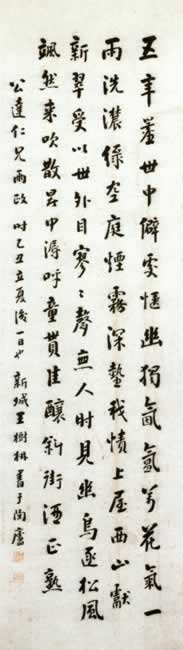 世中僻處愜幽獨氤氳萬花氣一
雨洗濃綠空庭煙霧深蟄我上屋西山獻
新翠受以世外目寥々聲無人时見幽鳥逐松風
颯然來吹散呼童貰佳釀斜街酒正熟
公達仁兄兩政 时乙丑立夏後一日也 新城王樹枏書于陶廬